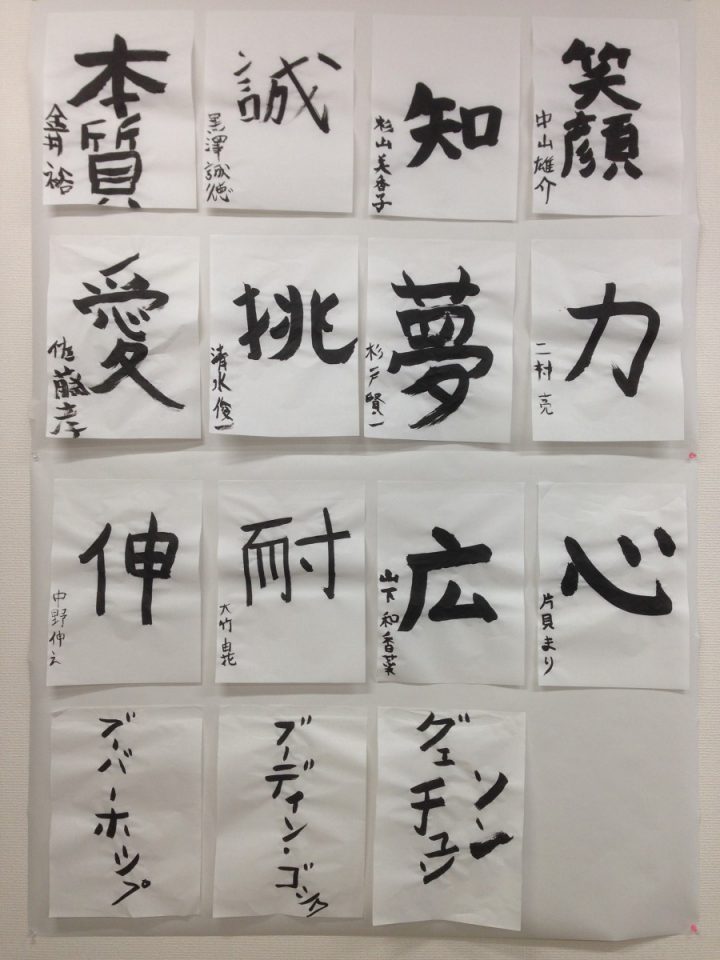 本質
金井裕
誠
黒澤誠徳
知
杉山美香子
笑顔
中山雄介
愛
佐藤孝
挑
清水俊一
夢
杉戸賢一
力
二村亮
伸
中野伸
耐
大竹
広
山下和香菜
心
片貝まり
ブーバーホップ
ブーディン・ゴック
ソン
グエチュン